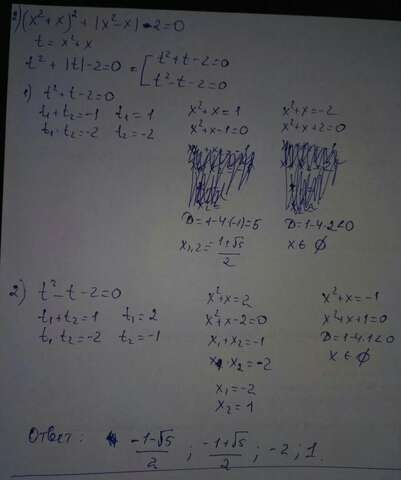 2) (x²+x)² + |x²-x| - 2=0
t = x²+x
t² + |t| - 2=0 = [ t²+t-2=0
t²-t-2=0
1) t²+t-2=0
t₁+t₂=-1 t₁=1
t₁·t₂=-2 t₂=-2
x²+x=1
x²+x-1=0
D=1-4·(-1)=5
x₁,₂= (1±√5)/2
x²+x=-2
x²+x+2=0
D=1-4·2<0
x ∈ ∅
2) t²-t-2=0
t₁+t₂=1 t₁=2
t₁ t₂=-2 t₂=-1
x²+x=2
x²+x-2=0
x₁+x₂=-1
x₁·x₂=-2
x₁=-2
x₂=1
x²+x=-1
x²+x+1=0
D=1-4·1<0
x ∈ ∅
Ответ: (-1-√5)/2 ; (-1+√5)/2 ; -2 ; 1.